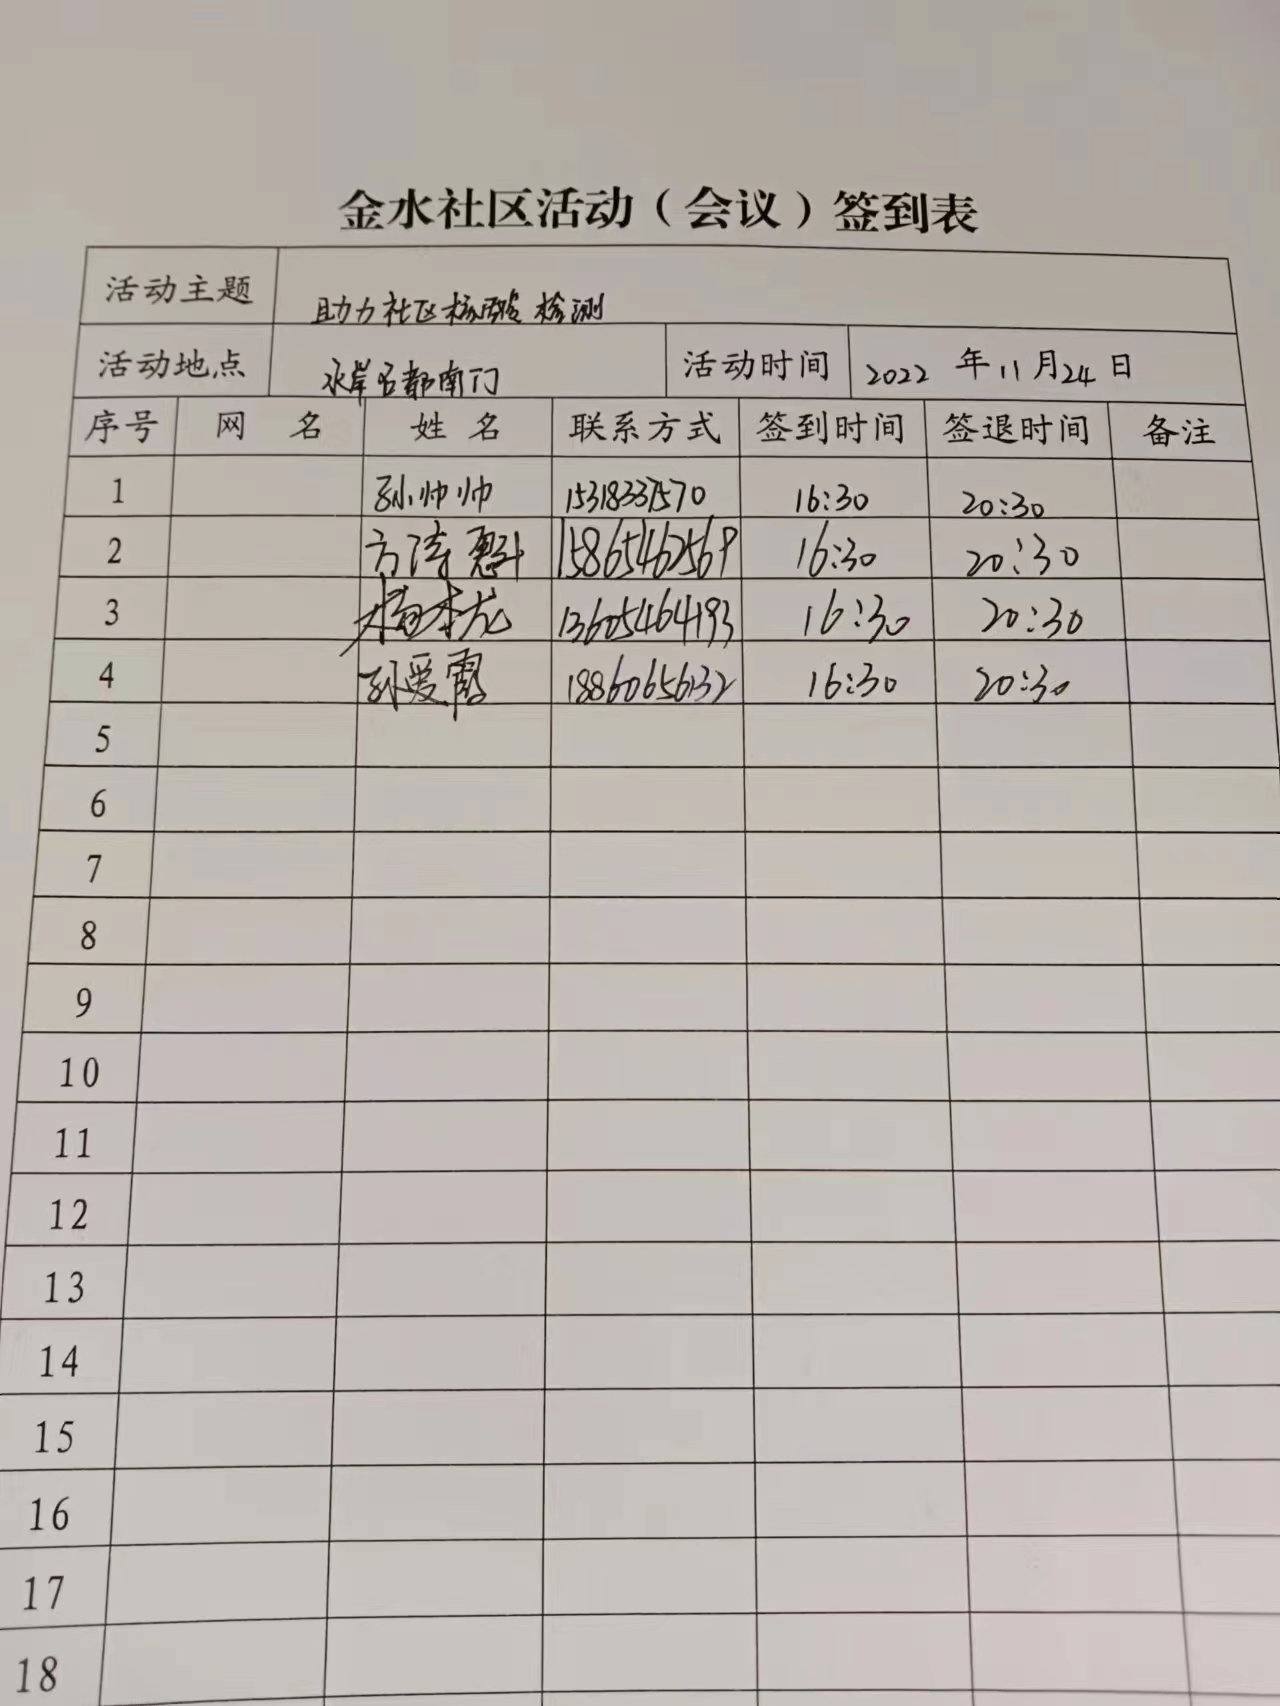 金水社区活动（会议）签到表
活动主题 助力社区核酸检测
活动地点 水岸名都南门 活动时间 2022 年 11 月 24 日
序号 网 名 姓 名 联系方式 签到时间 签退时间 备注
1 孙帅帅 15318337570 16:30 20:30
2 15865462569 16:30 20:30
3 13605464193 16:30 20:30
4 孙爱霞 18860656132 16:30 20:30
5
6
7
8
9
10
11
12
13
14
15
16
17
18